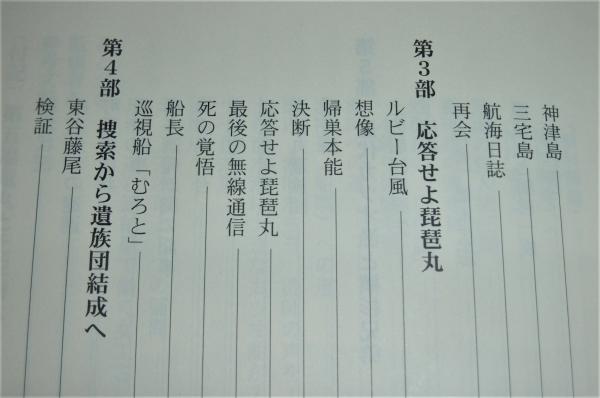 神津島
三宅島
航海日誌
再会
第3部 応答せよ琵琶丸
ルビー台風
想像
帰巣本能
決断
応答せよ琵琶丸
最後の無線通信
死の覚悟
船長
巡視船「むろと」
第4部 捜索から遺族団結成へ
東谷藤尾
検証